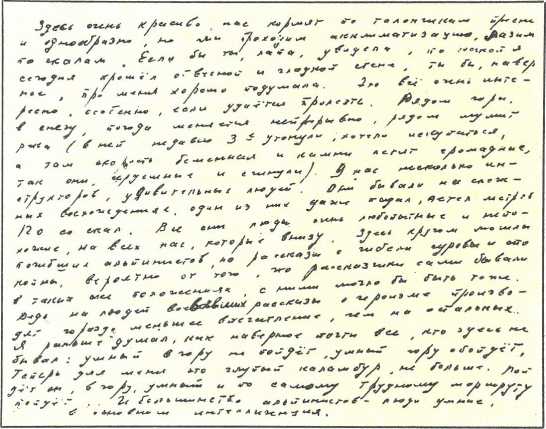 Здесь очень красиво, нас кормят по талончикам пресно
и однообразно, но мы проходим акклиматизацию, лазим
по скалам. Если бы ты, лапа, увидела, по какой я
сегодня прошёл отвесной и гладкой стене, ты бы, навер
ное, про меня хорошо подумала. Это всё очень инте-
ресно, особенно, если удаётся пролезть. Рядом горы,
в снегу, погода меняется непрерывно, рядом шумит
река (в ней недавно 3 утонули, хотели искупаться,
а там скорость бешенная и камни летят громадные,
так они, сердешные и сгинули). У нас несколько ин-
структоров, удивительных людей. Они бывали на слож-
ных восхождениях, один из них даже падал, летел метров
120 со скал. Все они люди очень любопытные и непо-
хожие, на всех нас, которые внизу. Здесь кругом могилы
погибших альпинистов, но рассказы о гибели суровы и спо
койны, вероятно от того, что рассказчики сами бывали
в таких же положениях, с ними могло бы быть тоже.
Ведь на людей воевавших рассказы о героизме произво-
дят гораздо меньшее впечатление, чем на остальных.
Я раньше думал, как наверное почти все, кто здесь не
бывал: умный в гору не пойдёт, умный гору обойдёт,
Теперь для меня это глупый каламбур, не больше. Пой
дёт он, в гору, умный и по самому трудному маршруту
пойдёт. И большинство альпинистов – люди умные,
в основном интеллигенция.